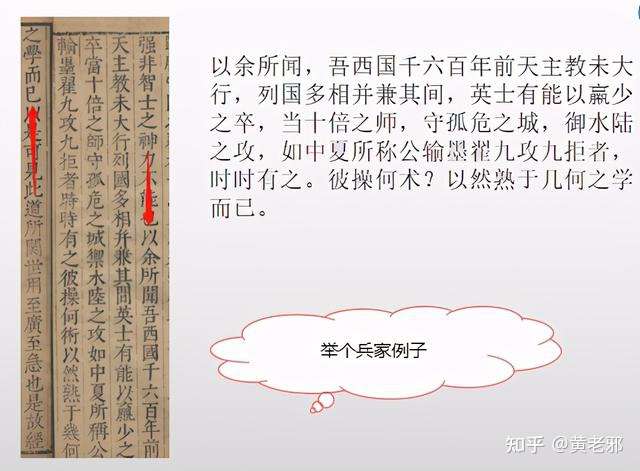 强非智士之神力不能也以余所聞吾西國千六百年前
天主教未大行列國多相并兼其間英士有能以羸少之
卒當十倍之師守孤危之城禦水陸之攻如中夏所稱公
輸墨翟九攻九拒者時時有之彼操何術以然熟于幾何
之學而已以是可見此道所關世用至廣至急也是故經
以余所闻，吾西国千六百年前天主教未大
行，列国多相并兼其间，英士有能以羸少
之卒，当十倍之师，守孤危之城，御水陆
之攻，如中夏所称公输墨翟九攻九拒者，
时时有之。彼操何术？以然熟于几何之学
而已。
举个兵家例子
知乎 @黄老邪